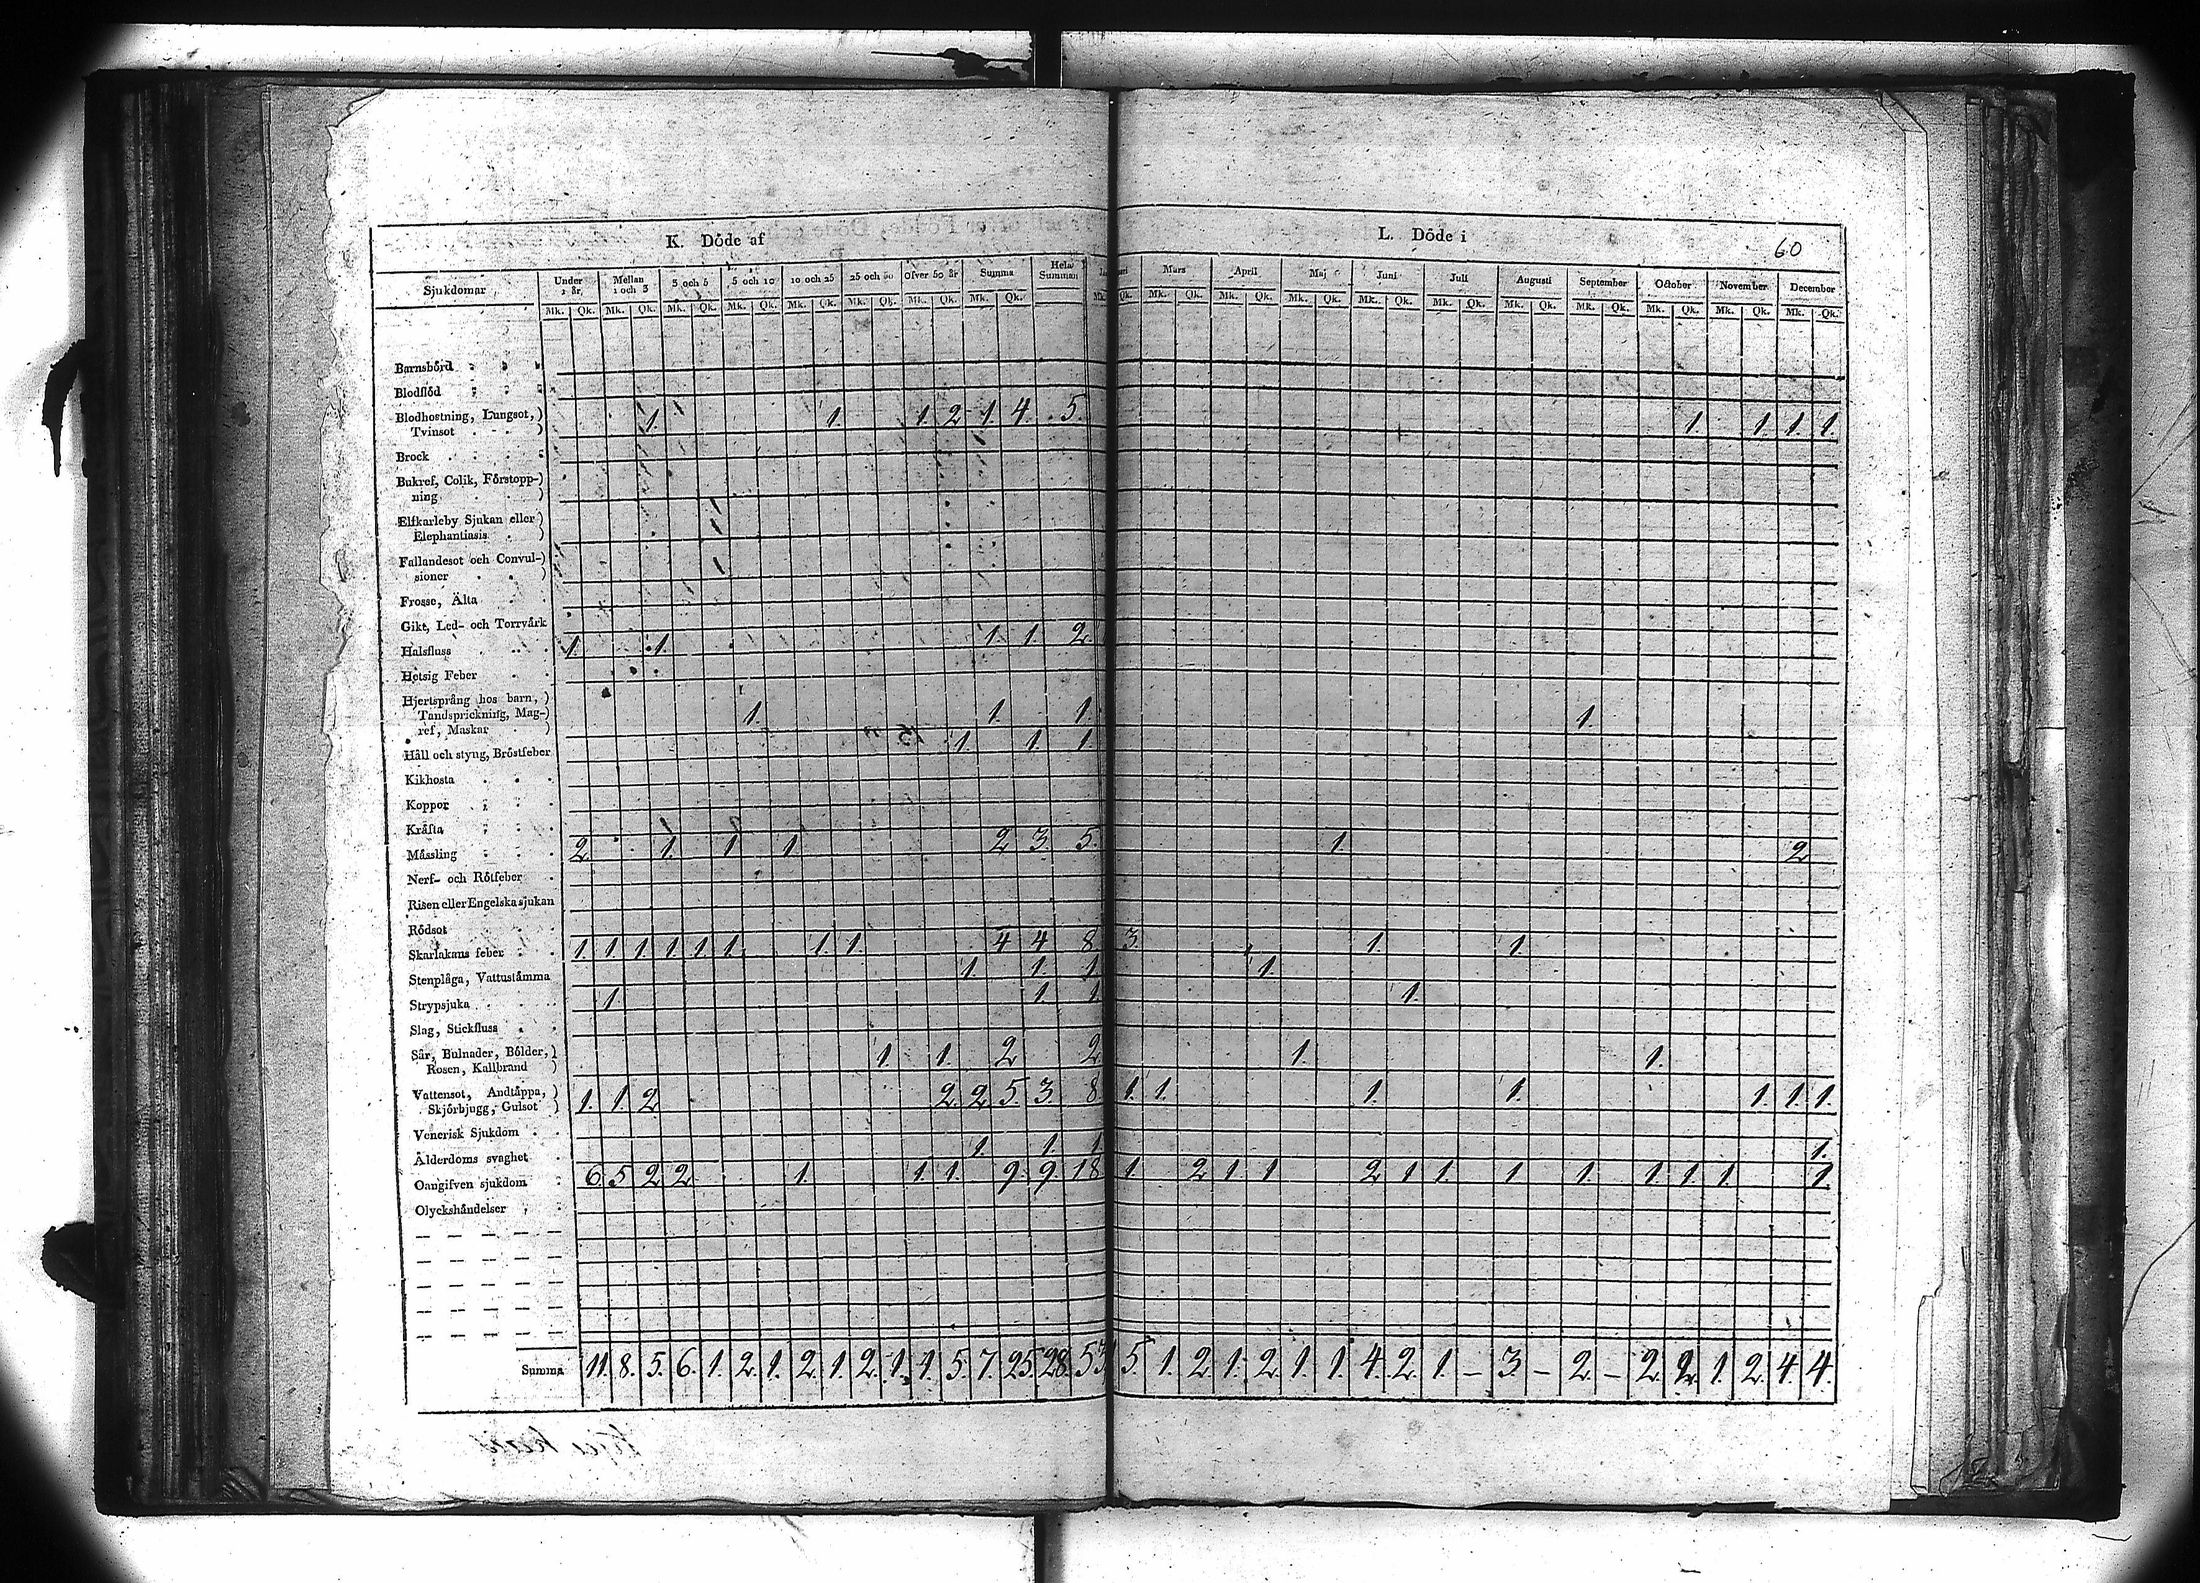 K. Döde af
L. Döde i
60
Sjukdomar
Under 1 år, Mellan 1 och 3 3 och 5 5 och 10 10 och 25 25 och 50 Öfver 50 år Summa Hela Summan
Mars April Maj Juni Juli Augusti September October November December
Mk. Qk. Mk. Qk. Mk. Qk. Mk. Qk. Mk. Qk. Mk. Qk. Mk. Qk. Mk. Qk.
Qk. Mk. Qk. Mk. Qk. Mk. Qk. Mk. Qk. Mk. Qk. Mk. Qk. Mk. Qk. Mk. Qk. Mk. Qk. Mk. Qk.
Barnsbörd
Blodflöd
Blodhostning, Lungsot,)
Tvinsot ) 1. 1. 1. 2 1. 4. 5. 1. 1. 1. 1.
Brock
Bukref, Colik, Förstopp-)
ning )
Elfkarleby Sjukan eller)
Elephantiasis )
Fallandesot och Convul-)
sioner )
Frosse, Älta
Gikt, Led- och Torrvärk
Halsfluss 1. 1. 1. 1. 2
Hetsig Feber
Hjertsprång hos barn, )
Tandsprickning, Mag-)
ref, Maskar ) 1. 1. 1. 1.
Håll och styng, Bröstfeber 1. 1. 1.
Kikhosta
Koppor
Kräfta
Mässling 2. 1. 1. 1. 2 3. 5. 1. 2
Nerf- och Rötfeber
Risen eller Engelska sjukan
Rödsot
Skarlakans feber 1. 1. 1. 1. 1. 1. 1. 1. 4 4 8 3. 1. 1.
Stenplåga, Vattustämma 1. 1. 1 1.
Strypsjuka 1 1 1 1.
Slag, Stickfluss
Sår, Bulnader, Bölder, )
Rosen, Kallbrand ) 1. 1. 2 2 1. 1.
Vattensot, Andtäppa, )
Skjörbjugg, Gulsot ) 1. 1. 2 2. 2. 5. 3. 8 1. 1. 1. 1. 1. 1. 1.
Venerisk Sjukdom
Ålderdoms svaghet 1. 1. 1 1.
Oangifven sjukdom 6. 5 2 2 1. 1. 1. 9. 9. 18 1. 2 1. 1 2 1 1. 1 1. 1 1. 1. 1
Olyckshändelser
Summa 11. 8. 5. 6. 1. 2. 1. 2. 1. 2. 1. 1. 5. 7. 25. 28. 53 5. 1. 2. 1. 2. 1. 1. 4. 2. 1. – 3. – 2. – 2. 2. 1. 2. 4. 4.